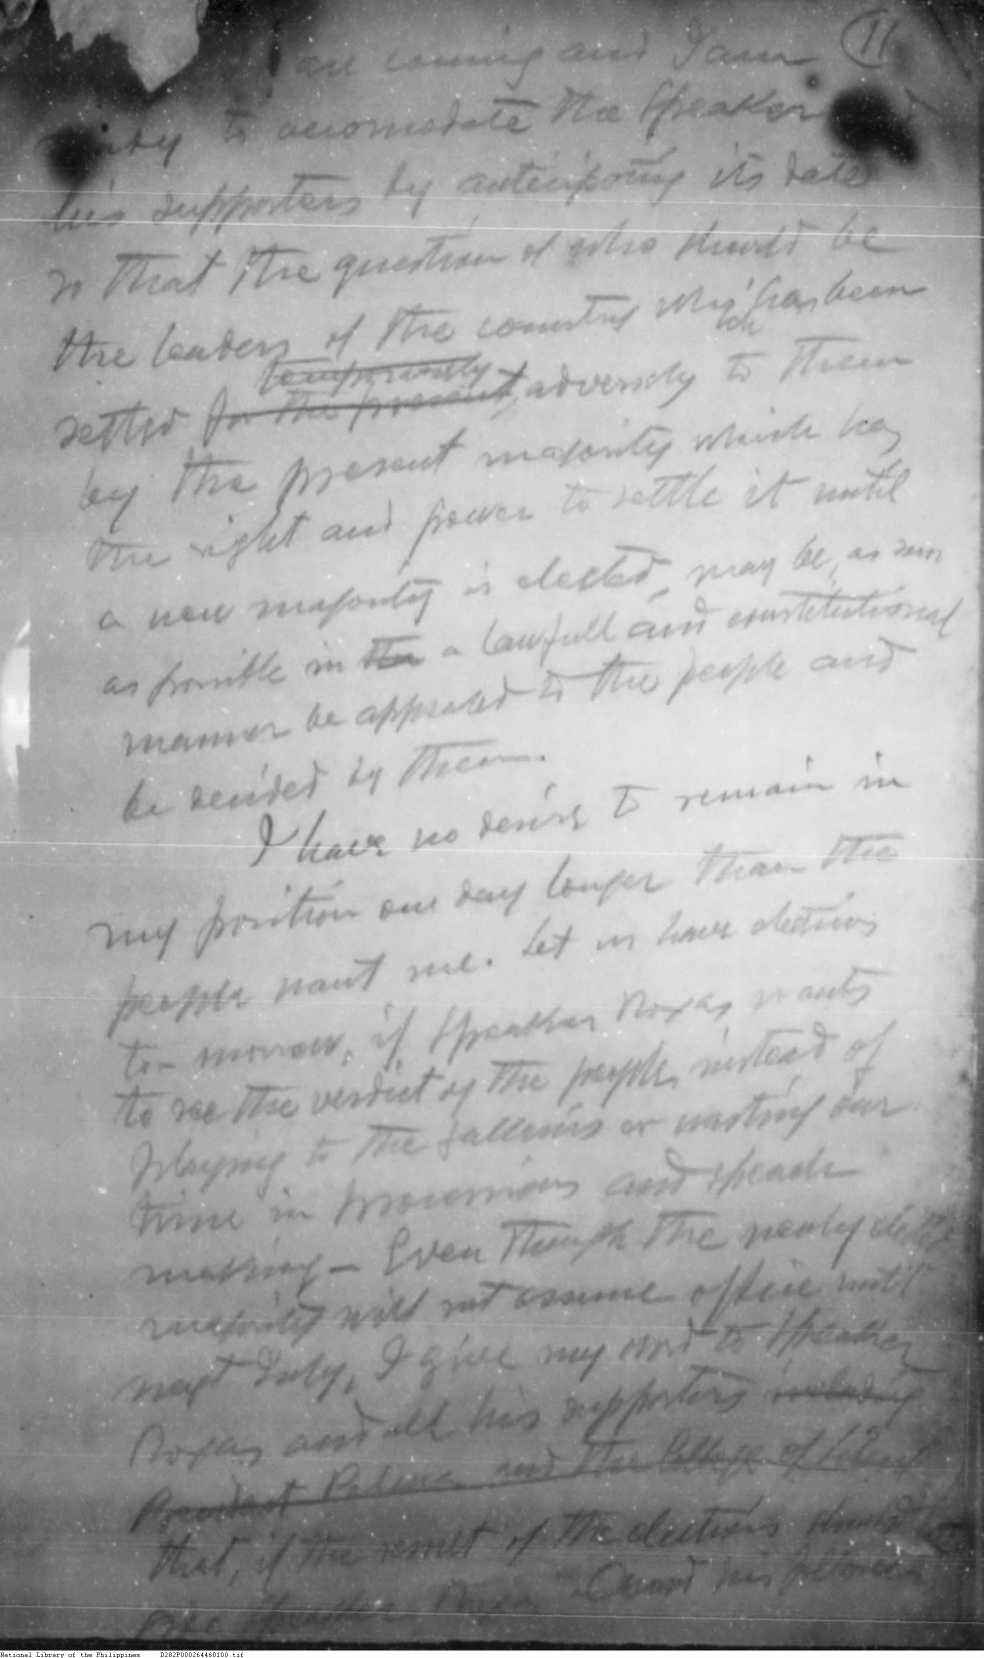 11
are coming and I am
ready to accomodate the Speaker
his supporters by anticipating its date
so that the question of who should be
the leaders of the country which has been
temporarily
settled for the present, adversely to them
by the present majority which has
the right and power to settle it until
a new majority is elected, may be, as soon
as possible in the a lawfull and constitutional
manner be appealed to the people and
be decided by them.
I have no desire to remain in
my position one day longer than the
people want me. Let us have elections
to-morrow, if Speaker Roxas wants
to see the verdict of the people, instead of
playing to the galleries or wasting our
time in processions and speech
making — Even though the newly elected
majority will not assume office until
next July, I give my word to Speaker
Roxas and all his supporters including
President Palma and the College of
that, if the result of the elections should
give Speaker Roxas and his followers
National Library of the Philippines D282P000264460100.tif